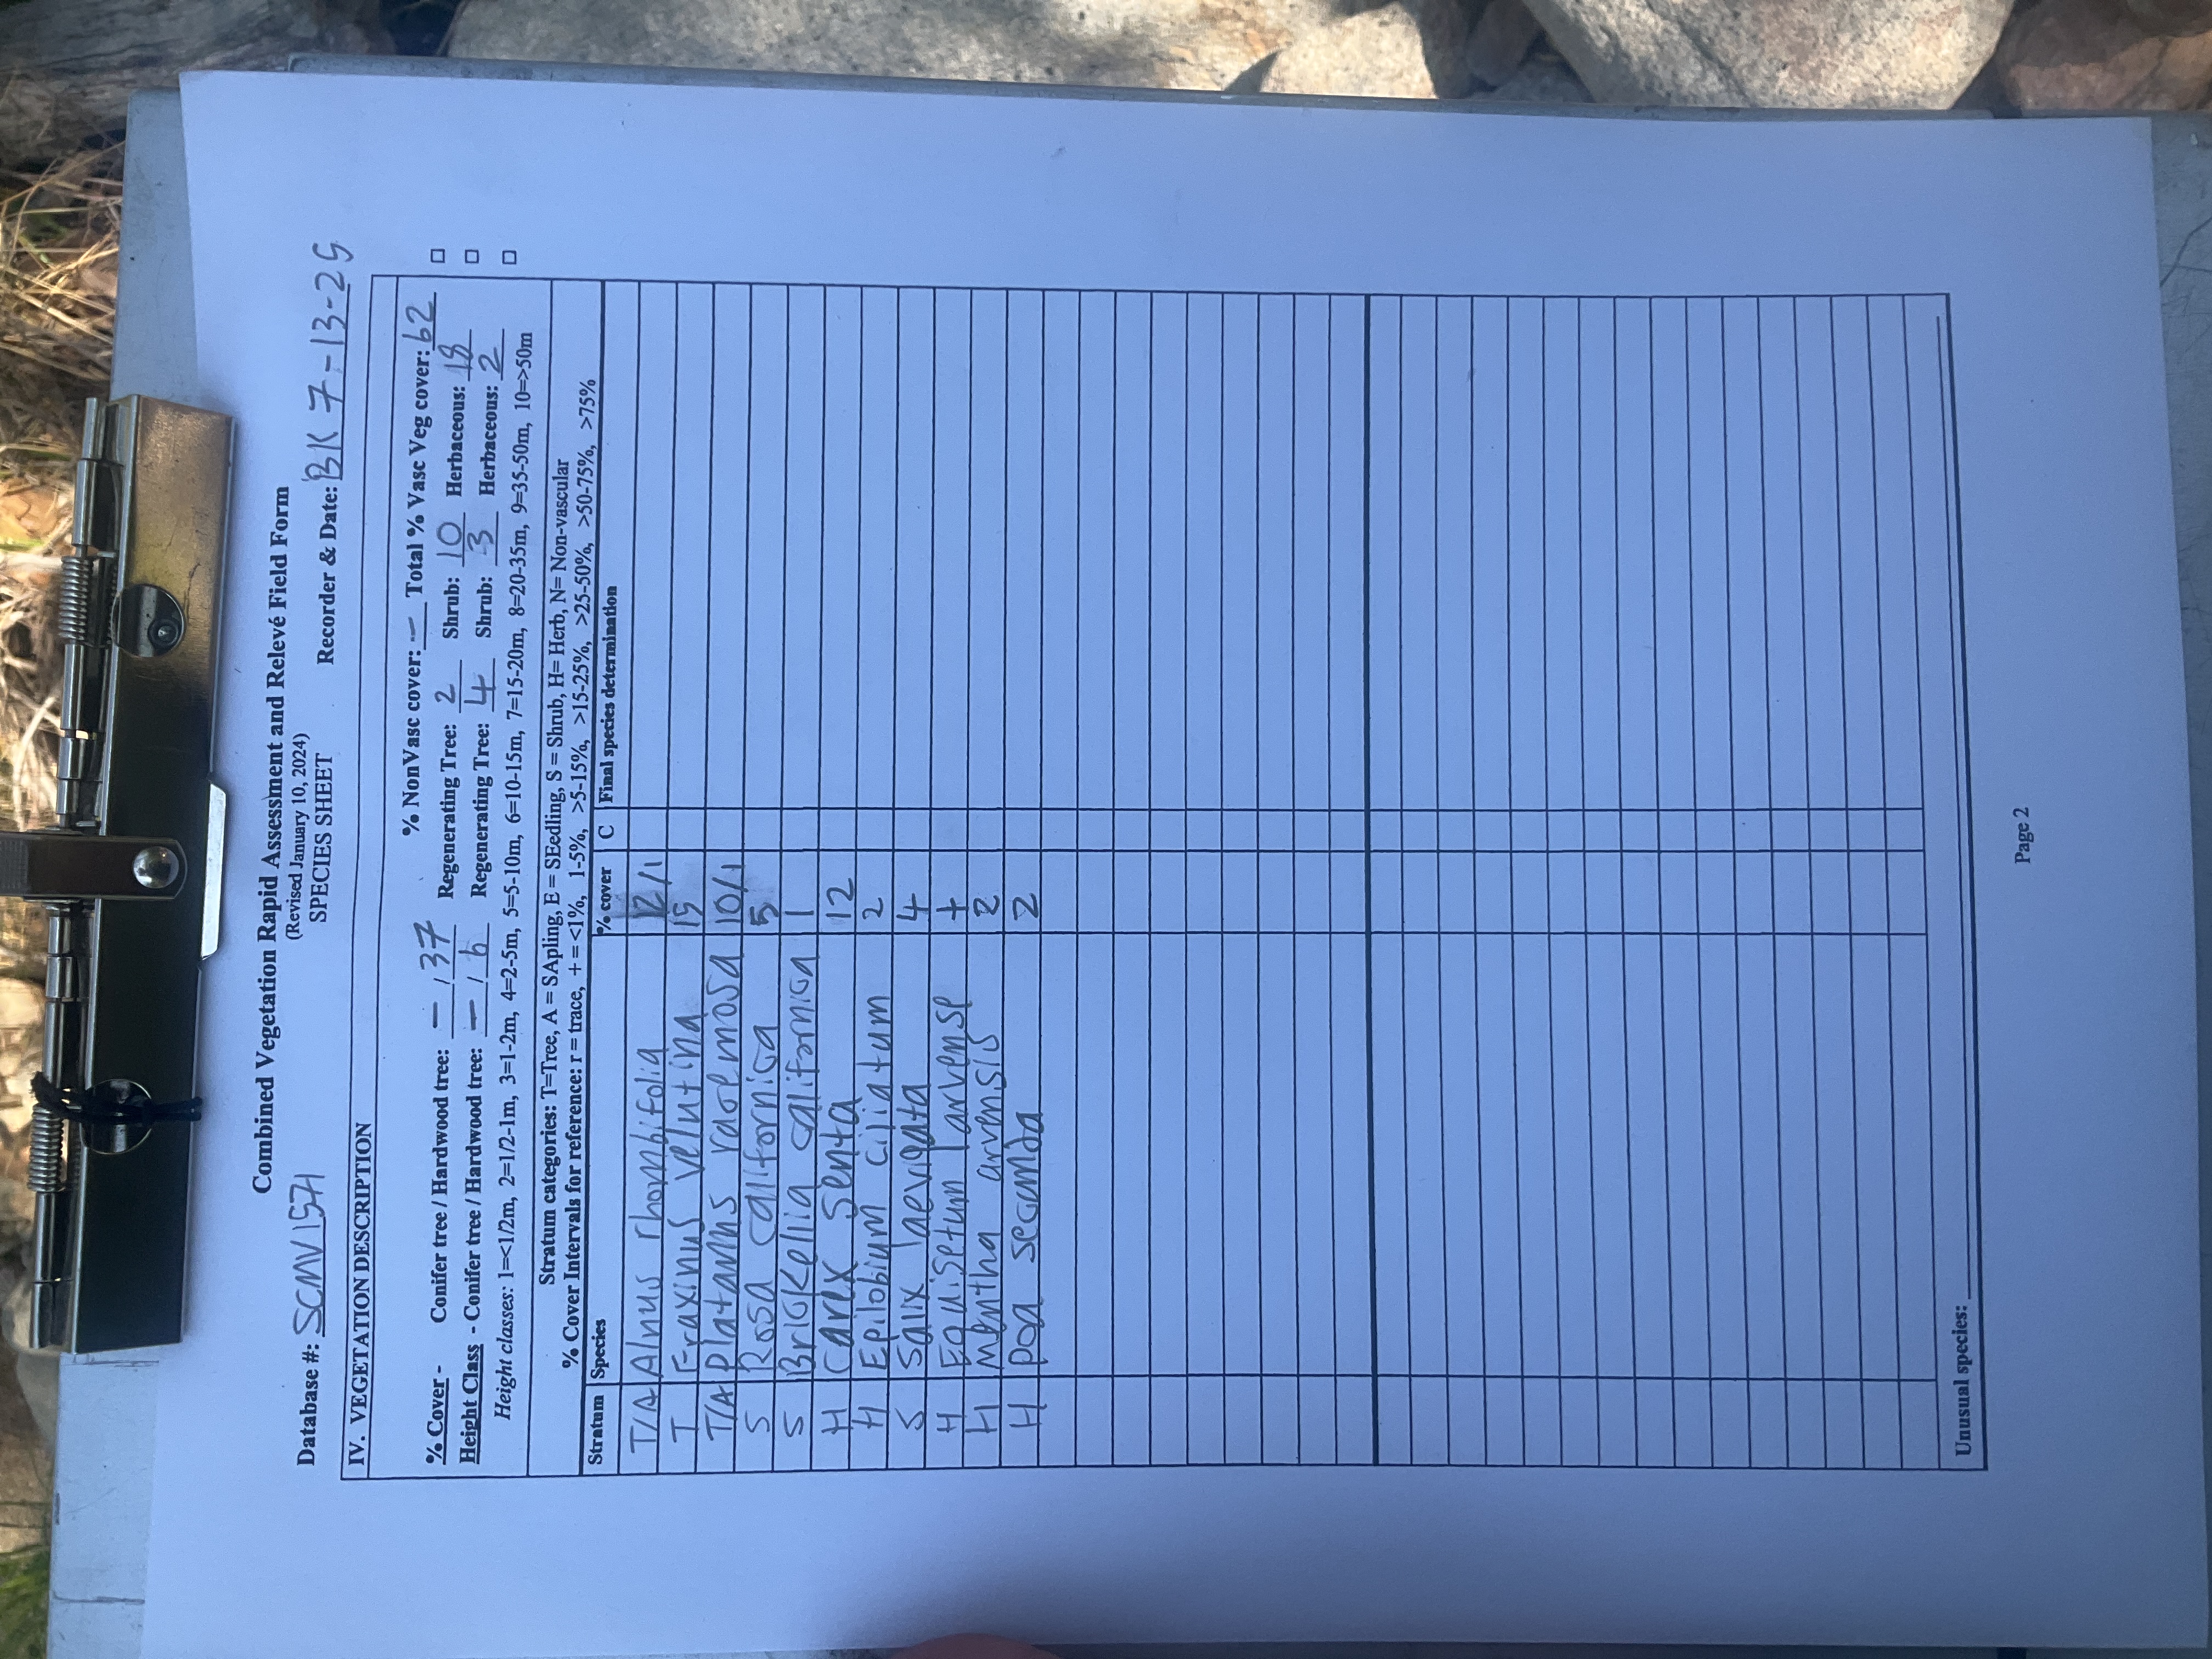 Combined Vegetation Rapid Assessment and Relevé Field Form
(Revised January 10, 2024)
SPECIES SHEET
Database #: SCMV1571 Recorder & Date: BK 7-13-25
IV. VEGETATION DESCRIPTION
% NonVasc cover: — Total % Vasc Veg cover: 62
% Cover - Conifer tree / Hardwood tree: — / 37 Regenerating Tree: 2 Shrub: 10 Herbaceous: 18
Height Class - Conifer tree / Hardwood tree: — / 6 Regenerating Tree: 4 Shrub: 3 Herbaceous: 2
Height classes: 1=<1/2m, 2=1/2-1m, 3=1-2m, 4=2-5m, 5=5-10m, 6=10-15m, 7=15-20m, 8=20-35m, 9=35-50m, 10=>50m
Stratum categories: T=Tree, A = SApling, E = SEedling, S = Shrub, H= Herb, N= Non-vascular
% Cover Intervals for reference: r = trace, + = <1%, 1-5%, >5-15%, >15-25%, >25-50%, >50-75%, >75%
Stratum Species % cover C Final species determination
T/A Alnus rhombifolia 12/1
T Fraxinus velutina 15
T/A Platanus racemosa 10/1
S Rosa californica 5
S Brickellia californica 1
H Carex senta 12
H Epilobium ciliatum 2
S Salix laevigata 4
H Equisetum arvense +
H Mentha arvensis 2
H poa secunda 2
Unusual species:
Page 2